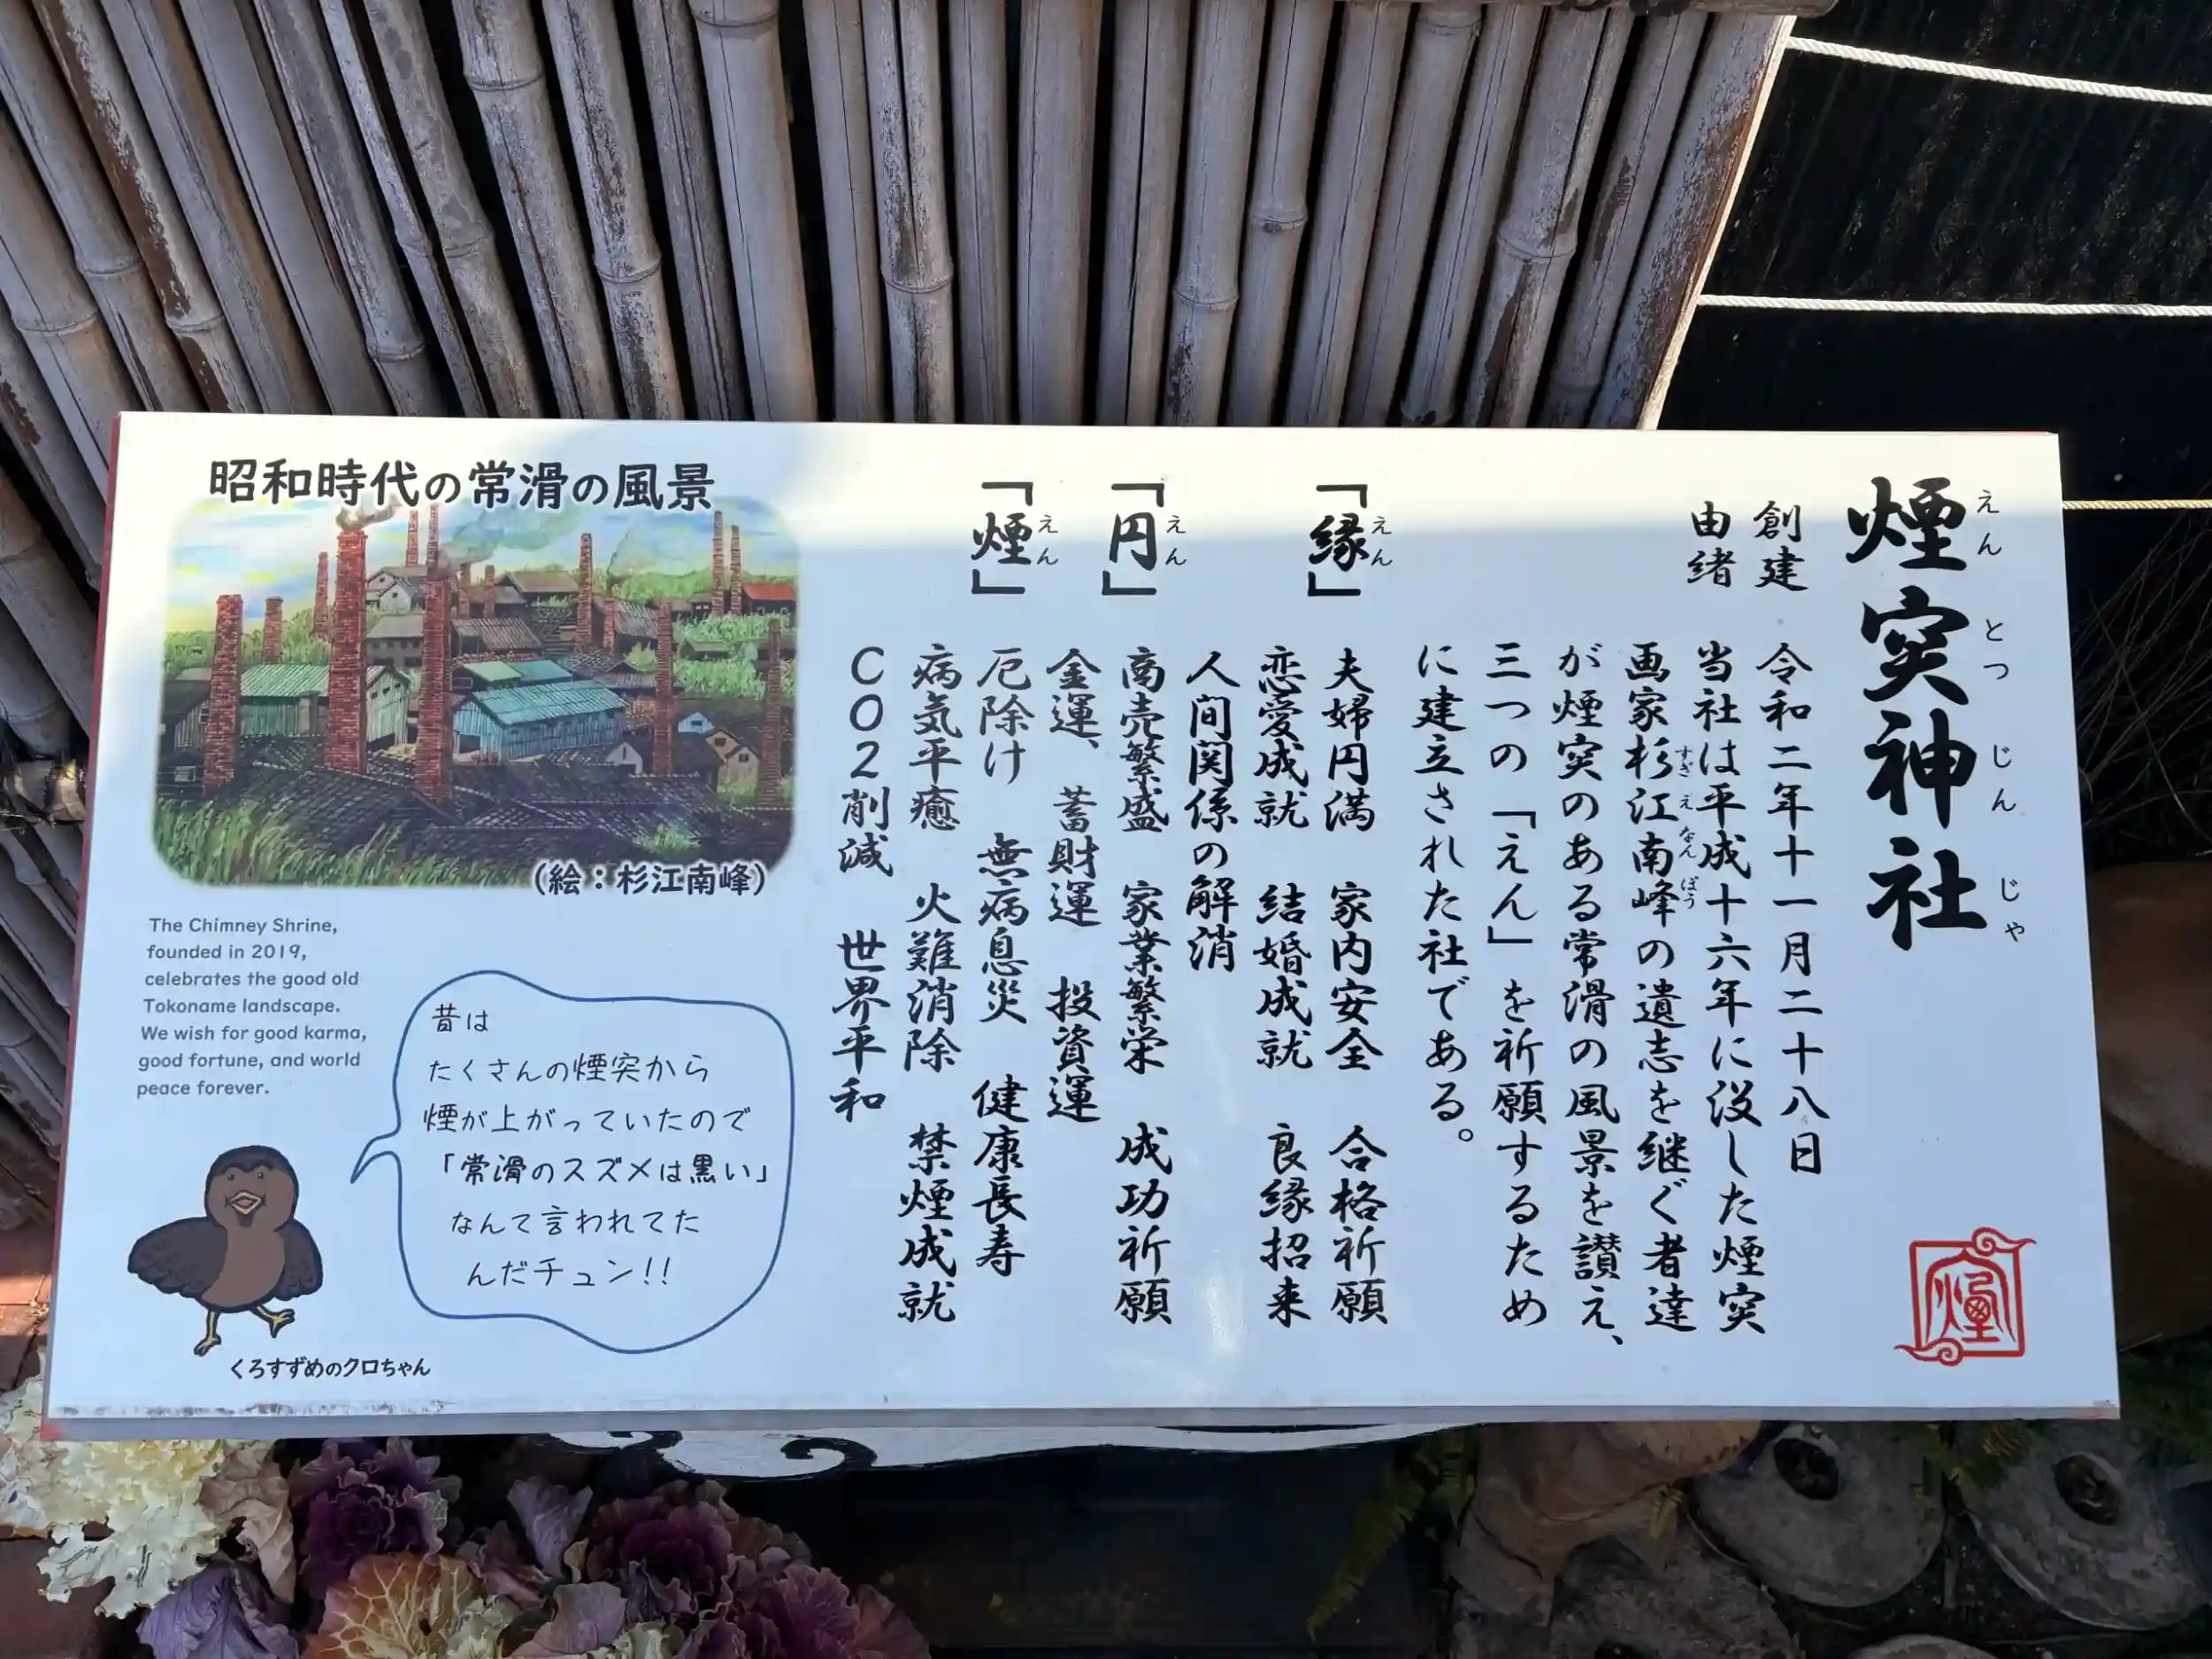 煙突神社
えんとつじんじゃ
創建 令和二年十一月二十八日
由緒 当社は平成十六年に没した煙突
画家杉江南峰の遺志を継ぐ者達
すぎえなんぽう
が煙突のある常滑の風景を讃え、
三つの「えん」を祈願するため
に建立された社である。
「縁」 夫婦円満 家内安全 合格祈願
えん
恋愛成就 結婚成就 良縁招来
人間関係の解消
「円」 商売繁盛 家業繁栄 成功祈願
えん
金運、蓄財運 投資運
「煙」 厄除け 無病息災 健康長寿
えん
病気平癒 火難消除 禁煙成就
CO2削減 世界平和
煙
昭和時代の常滑の風景
(絵:杉江南峰)
The Chimney Shrine,
founded in 2019,
celebrates the good old
Tokoname landscape.
We wish for good karma,
good fortune, and world
peace forever.
昔は
たくさんの煙突から
煙が上がっていたので
「常滑のスズメは黒い」
なんて言われてた
んだチュン!!
くろすずめのクロちゃん